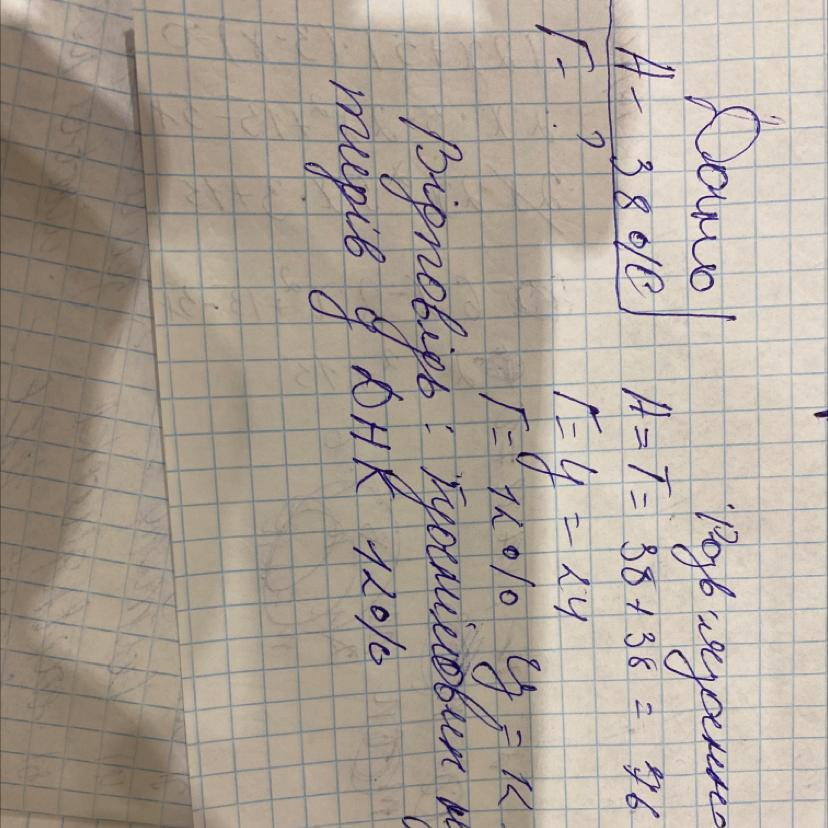 Дано
А - 38 %
Г - ?
Розв'язання
А = Т = 38 + 38 = 76
Г = Ц = 24
Г = 12% Ц = 12
Відповідь:
у ДНК 12%